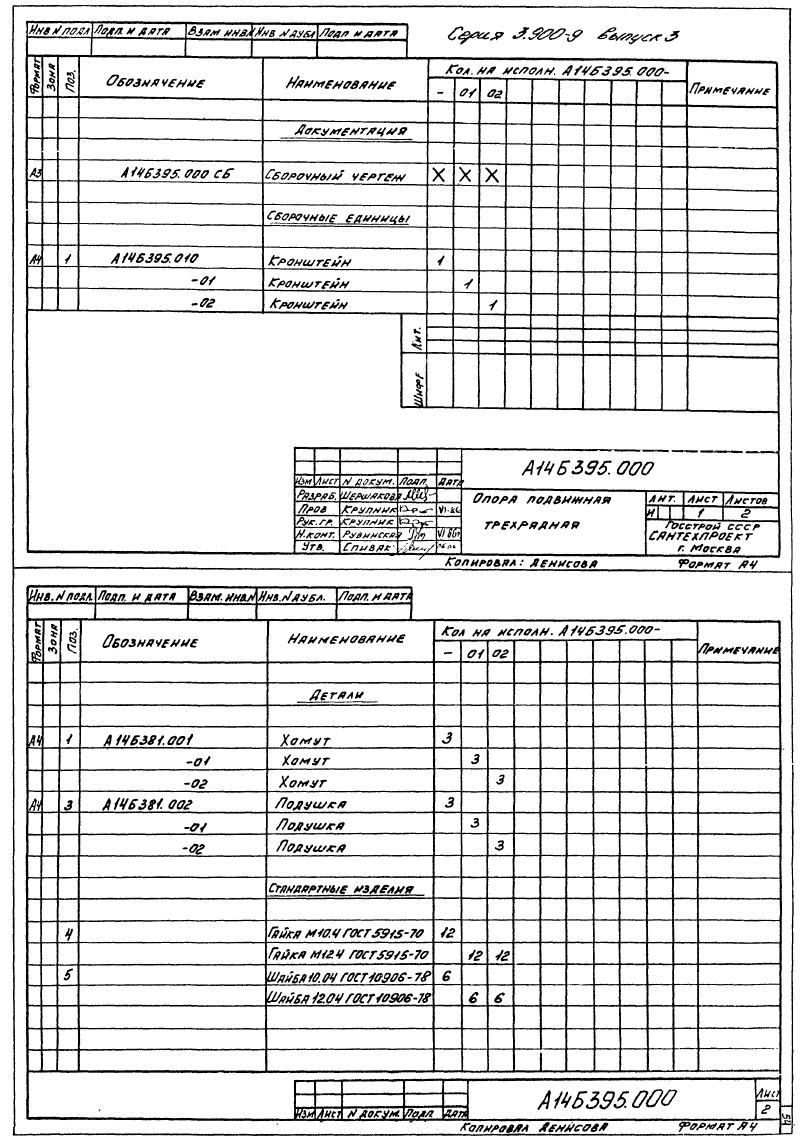 Серия 3.900-9 выпуск 3
Инв. N подл. Подп. и дата Взам. инв. N Инв. N дубл. Подп. и дата
Формат Зона Поз. Обозначение Наименование Кол. на исполн. А14Б395.000- Примечание
- 01 02
Документация
А3 А14Б395.000 СБ Сборочный чертеж X X X
Сборочные единицы
А4 1 А14Б395.010 Кронштейн 1
-01 Кронштейн 1
-02 Кронштейн 1
Лит.
Шифр
А14Б395.000
Изм Лист N докум. Подп. Дата
Разраб. Шершакова
Пров Крупник VI-86
Рук. гр. Крупник
Н.конт. Рувинская VI 86г
Утв. Спивак
Опора подвижная
трехрядная
Лит. Лист Листов
И 1 2
Госстрой СССР
Сантехпроект
г. Москва
Копировал: Денисова Формат А4
Инв. N подл. Подп. и дата Взам. инв. N Инв. N дубл. Подп. и дата
Формат Зона Поз. Обозначение Наименование Кол на исполн. А14Б395.000- Примечание
- 01 02
Детали
А4 1 А14Б381.001 Хомут 3
-01 Хомут 3
-02 Хомут 3
А4 3 А14Б381.002 Подушка 3
-01 Подушка 3
-02 Подушка 3
Стандартные изделия
4 Гайка М10.4 ГОСТ 5915-70 12
Гайка М12.4 ГОСТ 5915-70 12 12
5 Шайба 10.04 ГОСТ 10906-78 6
Шайба 12.04 ГОСТ 10906-78 6 6
Изм Лист N докум. Подп. Дата
А14Б395.000
Лист
2
54
Копировал Денисова Формат А4